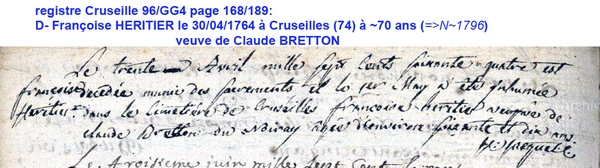 registre Cruseille 96/GG4 page 168/189:
D- Françoise HERITIER le 30/04/1764 à Cruseilles (74) à ~70 ans (=>N~1796)
veuve de Claude BRETTON
Le trente Avril mille sept cents soixante quatre est
françoise decedée munie des sacrements et le 1er May a été inhumée
heritier dans le Cimetière de Cruseilles françoise heritier veufve de
claude Bretton du agée d'environ soixante et dix ans
Le troisieme juin mille sept cent